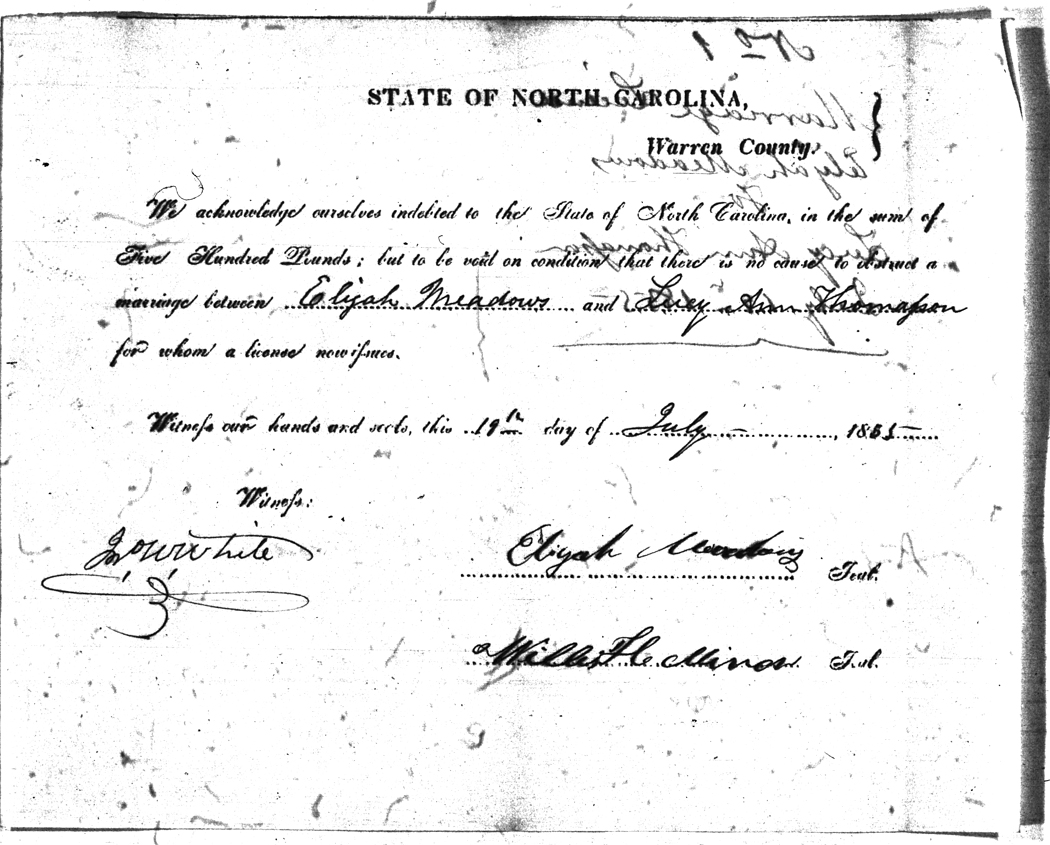 No 1
STATE OF NORTH CAROLINA,
Marriage
Warren County.
Elijah Meadows
We acknowledge ourselves indebted to the State of North Carolina, in the sum of
Lucy Ann Thomason
Five Hundred Pounds; but to be void on condition that there is no cause to obstruct a
marriage between Elijah Meadows and Lucy Ann Thomason
for whom a license now issues.
Witness our hands and seals, this 19th day of July, 1855
Witness:
Jno W White
Elijah Meadows Seal.
Seal.